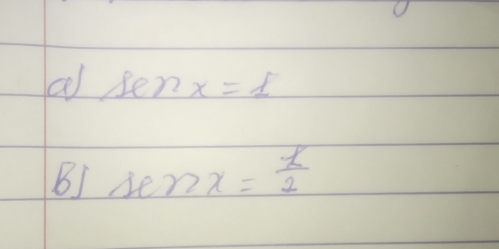 a) sen x = 1
b) sen x = 1/2